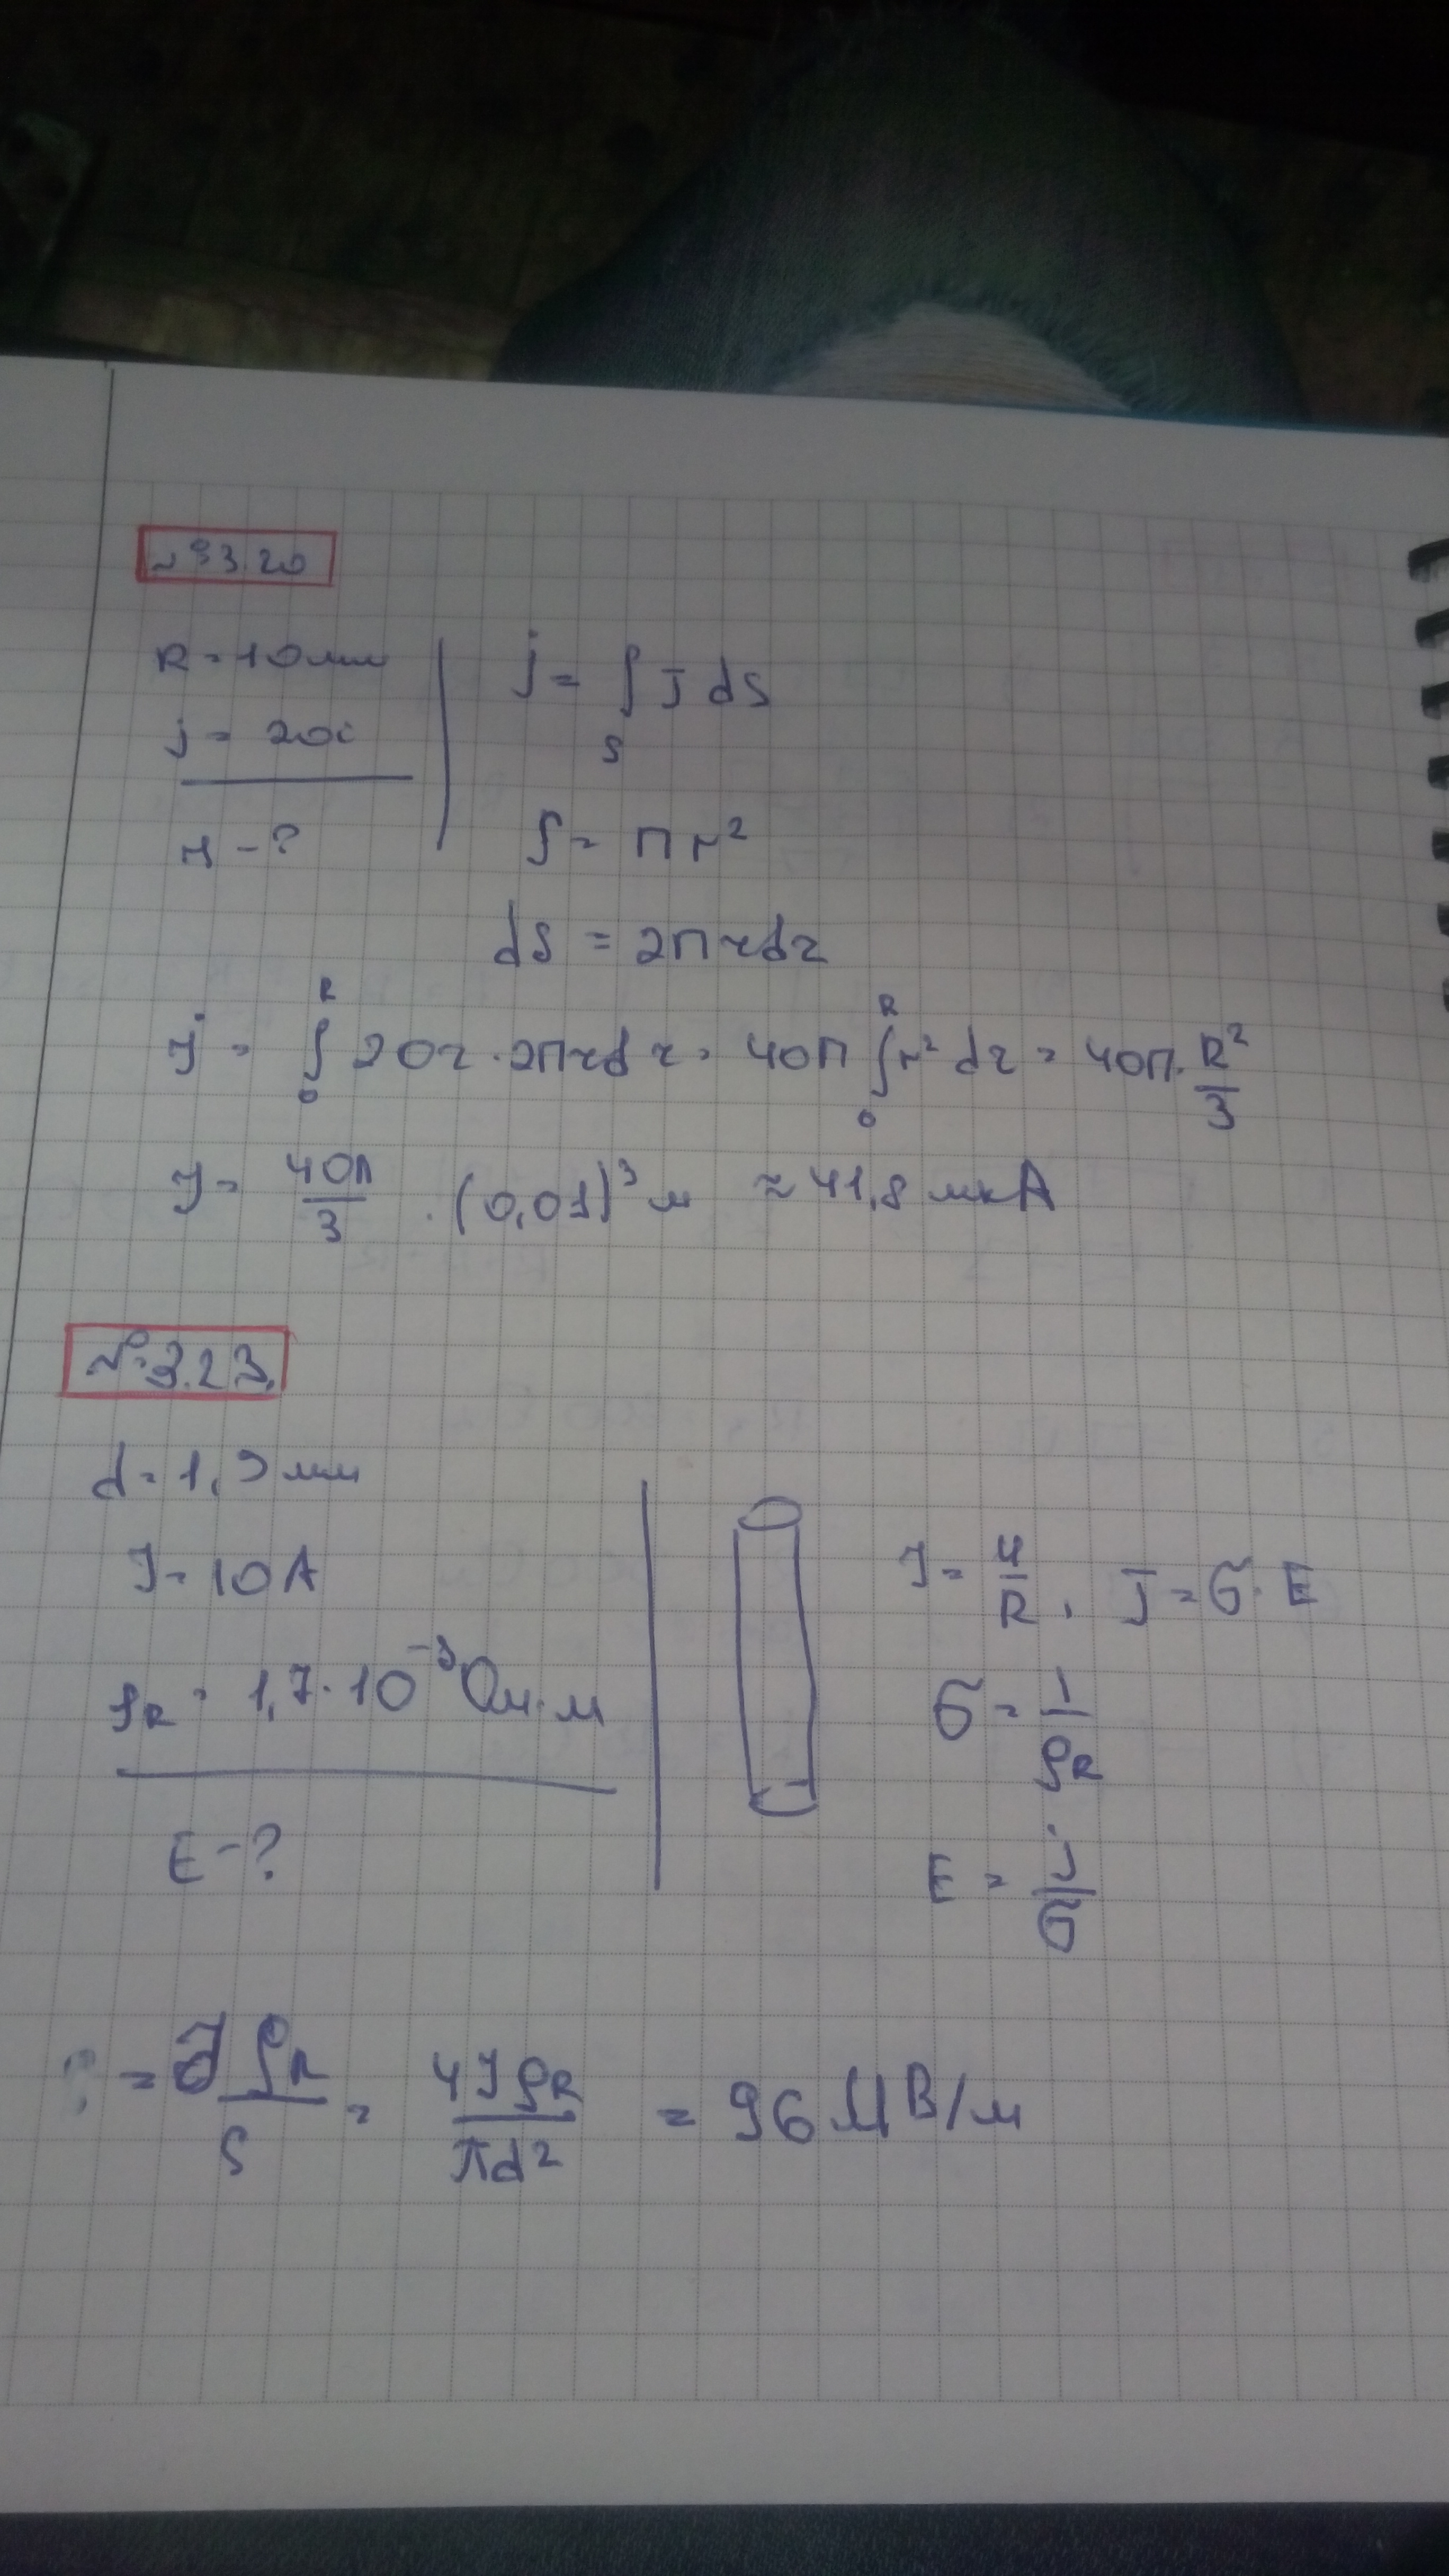 №3.20
R = 10 мм
j = 20r
J - ?
j = ∫ J dS
S
S = Пr²
dS = 2Пrdr
J = ∫₀ᴿ 20r · 2Пrdr = 40П ∫₀ᴿ r² dr = 40П · R²/3
J = 40П/3 · (0,01)³ м ≈ 41,8 мкА
№ 3.23.
d = 1,5 мм
J = 10 А
ρR = 1,7 · 10⁻³ Ом · м
E - ?
J = U/R , J = б · E
б = 1/ρR
E = j/б
= JρR/S = 4JρR/πd² = 96 МВ/м